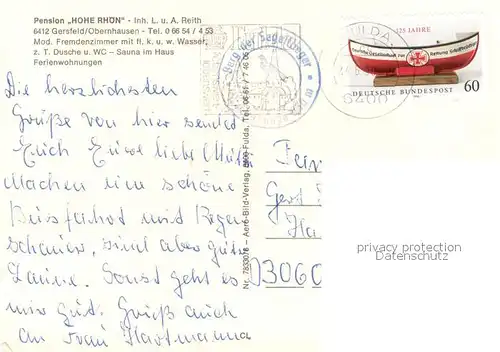 Pension „HOHE RHÖN" - Inh. L. u. A. Reith
6412 Gersfeld/Obernhausen - Tel. 0 66 54 / 4 53
Mod. Fremdenzimmer mit fl. k. u. w. Wasser,
z. T. Dusche u. WC – Sauna im Haus
Ferienwohnungen
Die herzlichsten
Grüße von hier sendet
Euch Eure liebe Mutti
Machen eine schöne
Busfahrt mit Regen
schauer, sind aber guter
Laune. Sonst geht es
mir gut. Gruß auch
an Frau Hartmann
Berg der Segelflieger
Nr. 7833076 – Aero-Bild-Verlag, 6400 Fulda, Tel. 06 61 / 7 46 06
FULDA
6400
125 JAHRE
Deutsche Gesellschaft zur Rettung Schiffbrüchiger
DEUTSCHE BUNDESPOST
60
Fam
Gerd
Ha
03060
privacy protection
Datenschutz